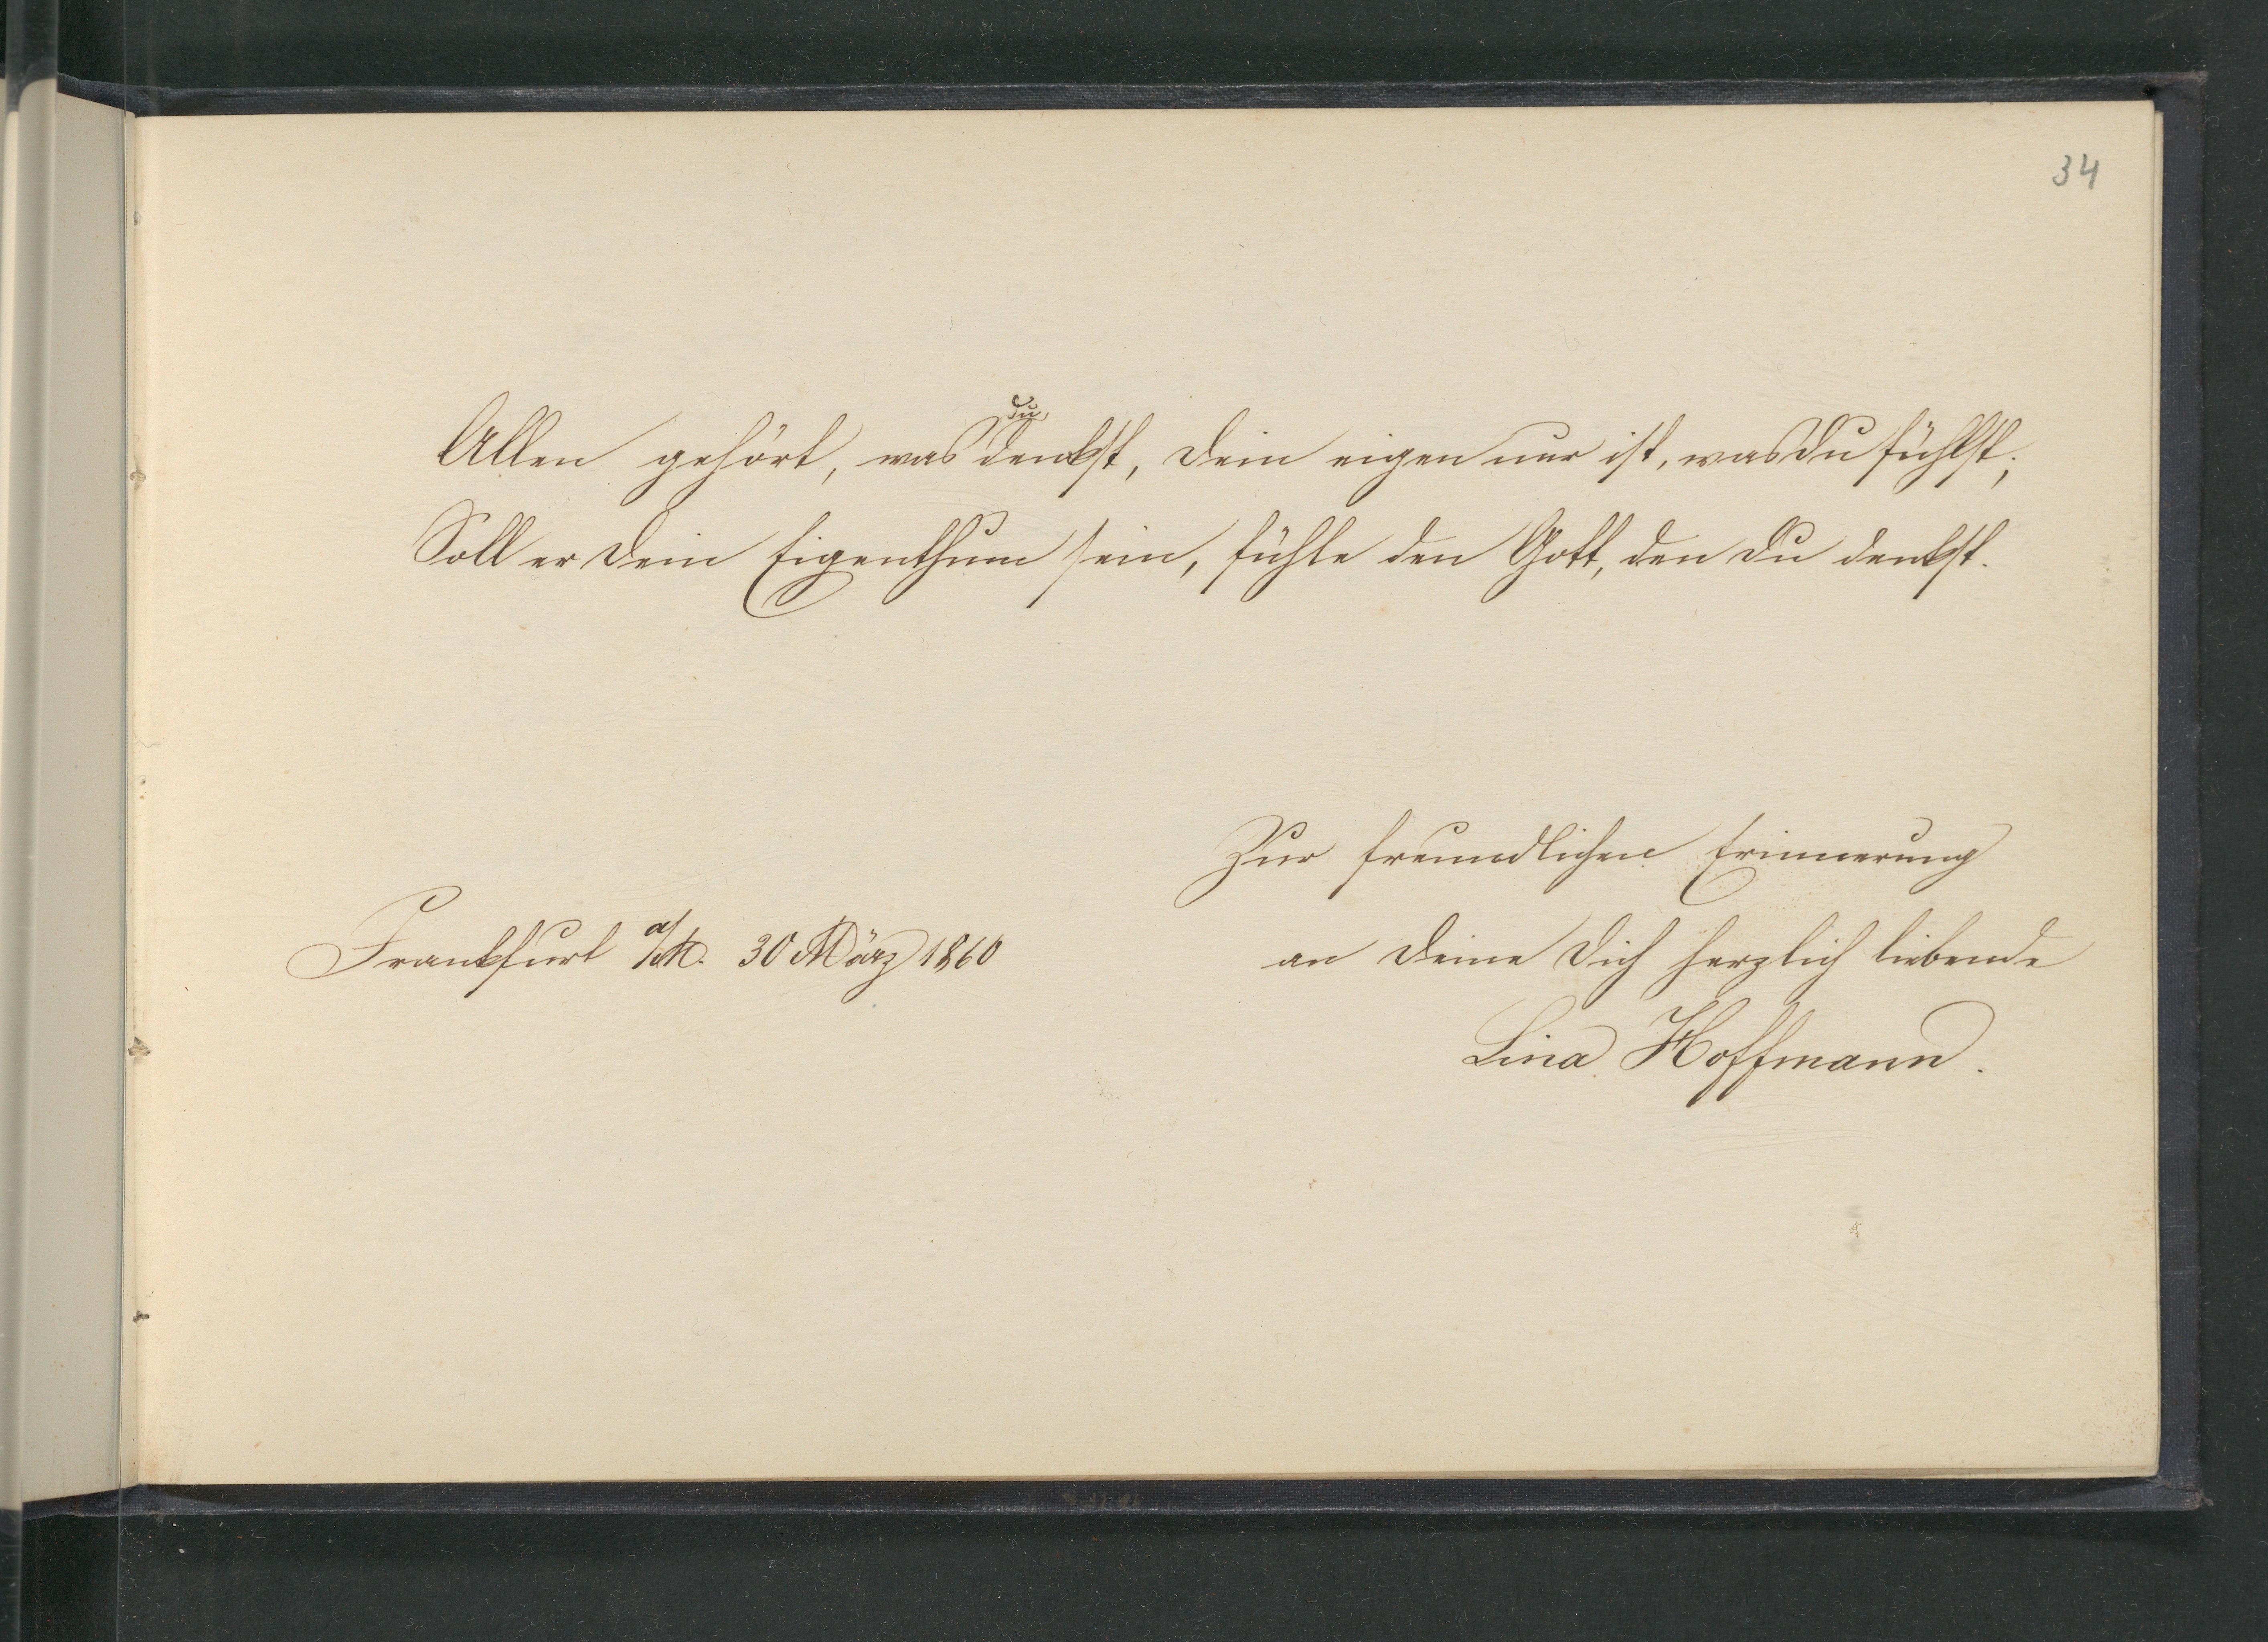 34
Allen gehört, was du denkst, dein eigen nur ist, was du fühlst;
Soll er dein Eigenthum sein, fühle den Gott, den du denkst.
Zur freundlichen Erinnerung
Frankfurt a/M. 30 März 1860
an deine dich herzlich liebende
Lina Hoffmann.